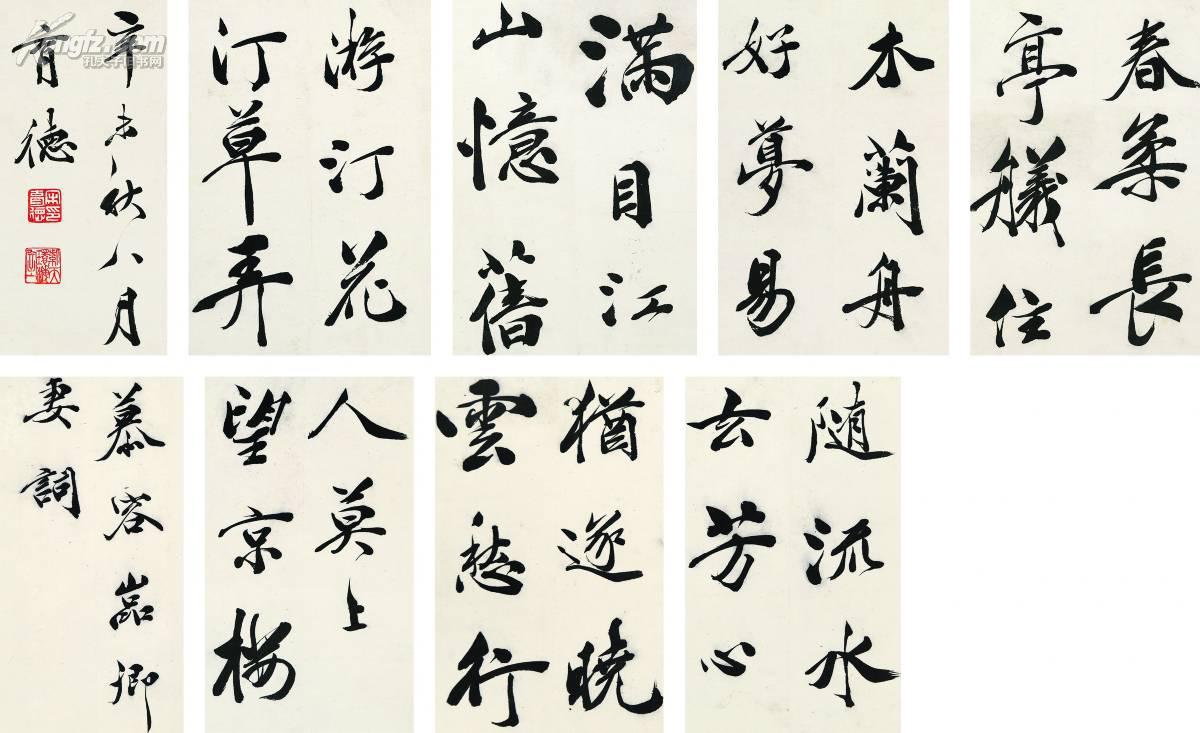 滿目江
山憶舊
游汀花
汀草弄
春柔長
亭艤住
木蘭舟
好夢易
随流水
去芳心
猶逐曉
雲愁行
人莫上
望京樓
慕容嵓卿
妻詞
辛未秋八月
育德
Kongfz.com
孔夫子旧书网